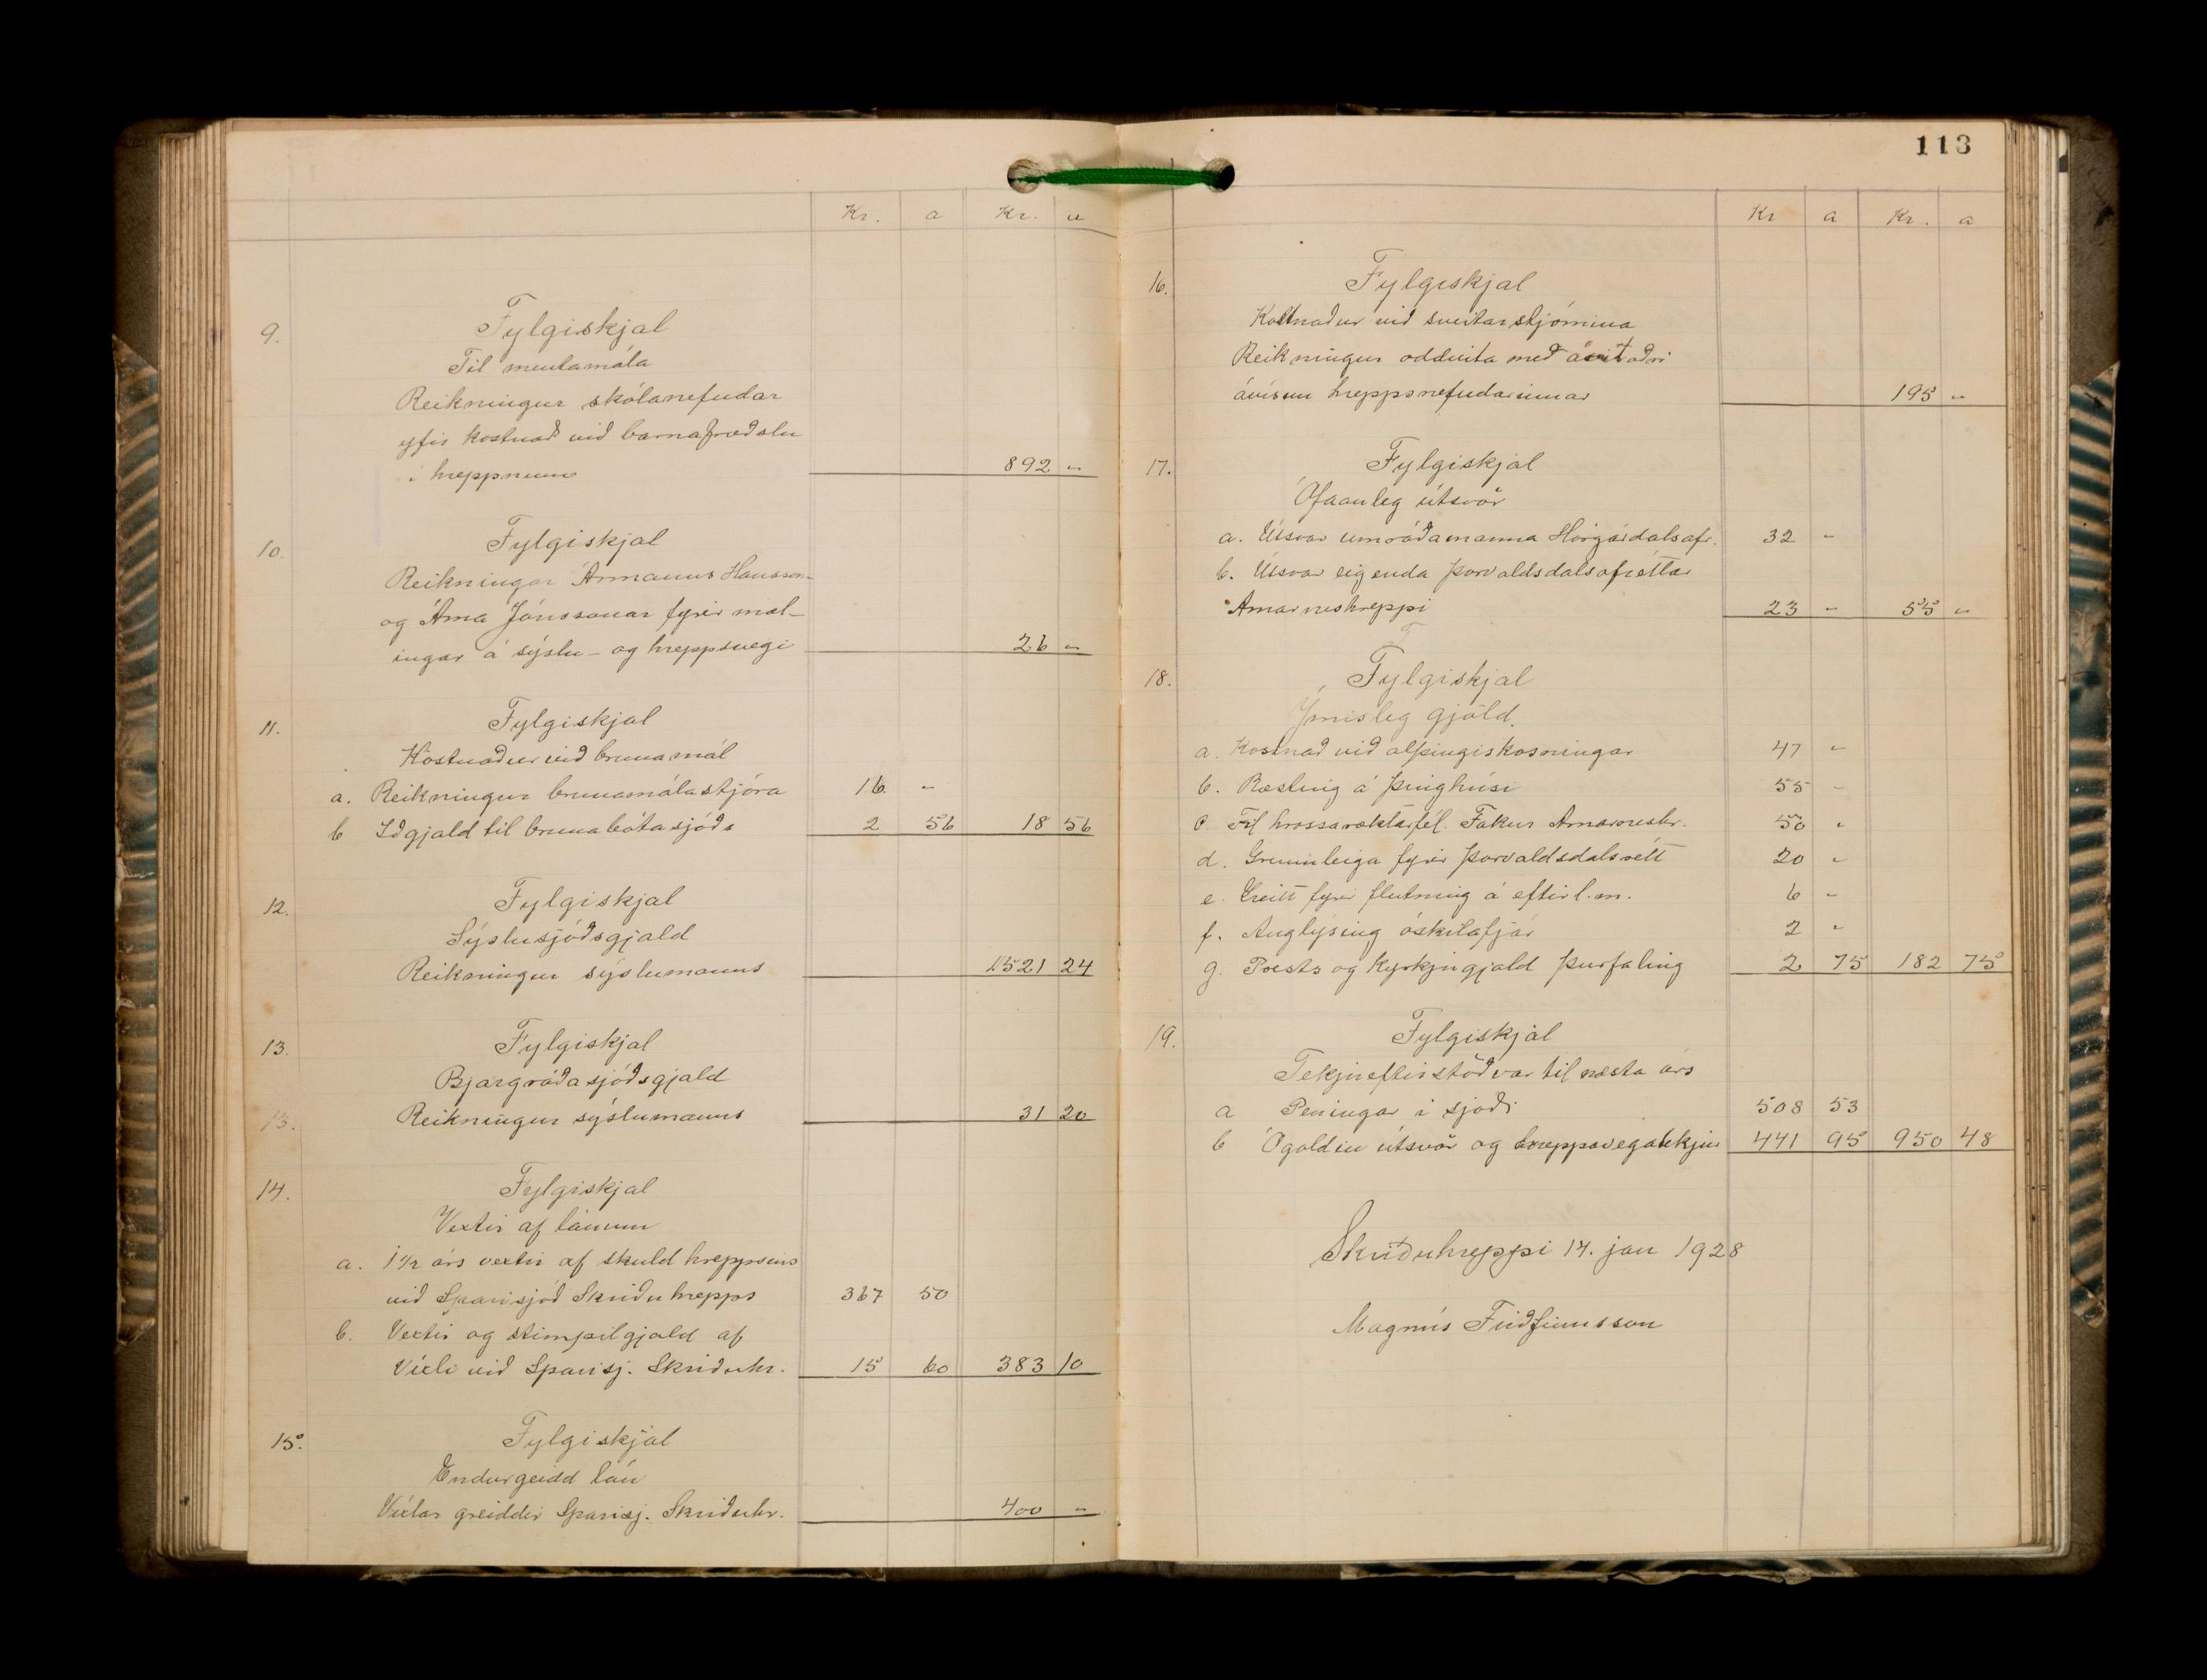 Kr. a Kr. a
9. Fylgiskjal
Til mentamála
Reikningur skólanefndar
yfir kostnað við barnafræðslu
í hreppnum 892 "
10. Fylgiskjal
Reikningar Ármanns Hanssonar
og Árna Jónssonar fyrir mæl-
ingar á sýslu- og hreppsvegi 26 "
11. Fylgiskjal
Kostnaður við brunamál
a. Reikningur brunamálastjóra 16 "
b Iðgjald til brunabótasjóðs 2 56 18 56
12. Fylgiskjal
Sýslusjóðsgjald
Reikningur sýslumanns 1521 24
13. Fylgiskjal
Bjargráðasjóðsgjald
13. Reikningur sýslumanns 31 20
14. Fylgiskjal
Vextir af lánum
a. 1 1/2 árs vextir af skuld hreppsins
við Sparisjóð Skriðuhrepps 367 50
b. Vextir og stimpilgjald af
Víxli við Sparisj. Skriðuhr. 15 60 383 10
15. Fylgiskjal
Endurgeidd lán
Víxlar greiddir Sparisj. Skriðuhr. 400 "
113
Kr a Kr. a
16. Fylgiskjal
Kostnaður við sveitarstjórnina
Reikningur oddvita með áritaðri
ávísun hreppsnefndarinnar 195 "
17. Fylgiskjal
Ófáanleg útsvör
a. Útsvar umráðamanna Hörgárdalsafr. 32 "
b. Útsvar eigenda Þorvaldsdalsafréttar
Arnarneshreppi 23 " 55 "
18. Fylgiskjal
Ýmisleg gjöld.
a. Kostnað við alþingiskosningar 47 "
b. Ræsting á þinghúsi 55 "
c. Til hrossaræktarfél. Fákur Arnarneshr. 50 "
d. Grunnleiga fyrir Þorvaldsdalsrétt 20 "
e. Greitt fyrir flutning á eftirl.m. 6 "
f. Auglýsing óskilafjár 2 "
g. Prests og Kyrkjugjald þurfaling 2 75 182 75
19. Fylgiskjal
Tekjueftirstöðvar til næsta árs
a Peningar í sjóði 508 53
b Ógoldin útsvör og hreppsvegatekjur 441 95 950 48
Skriðuhreppi 14. jan 1928
Magnús Friðfinnsson